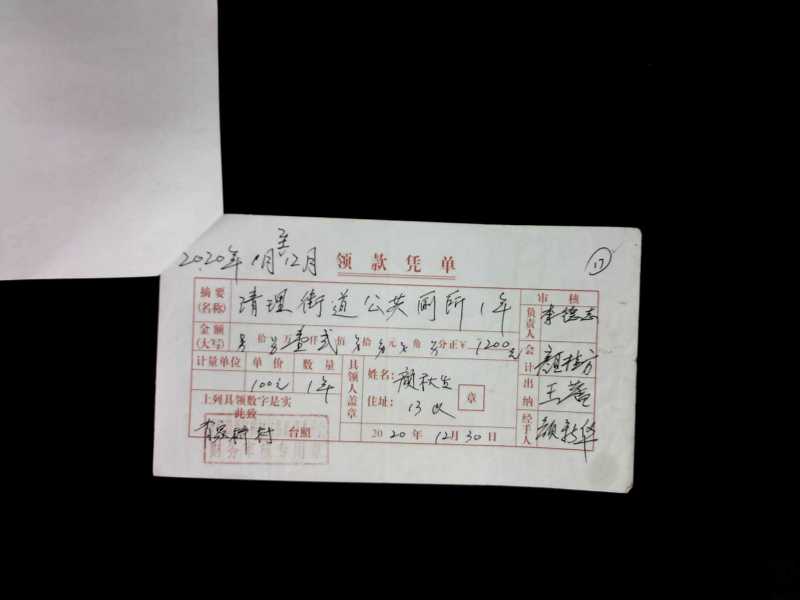 2020年1月至12月 领款凭单 17
摘要(名称) 清理街道公共厕所1年 审核
金额(大写) 拾 万 壹仟 贰佰 拾 元 角 分正¥ 1200元 负责人
计量单位 单价 数量 具领人盖章 姓名: 颜秋生 会计
100元 1年 住址: 13 章 出纳 王
上列具领数字是实
此致
村 台照 2020年12月30日 经手人 颜新华
财务审核专用章